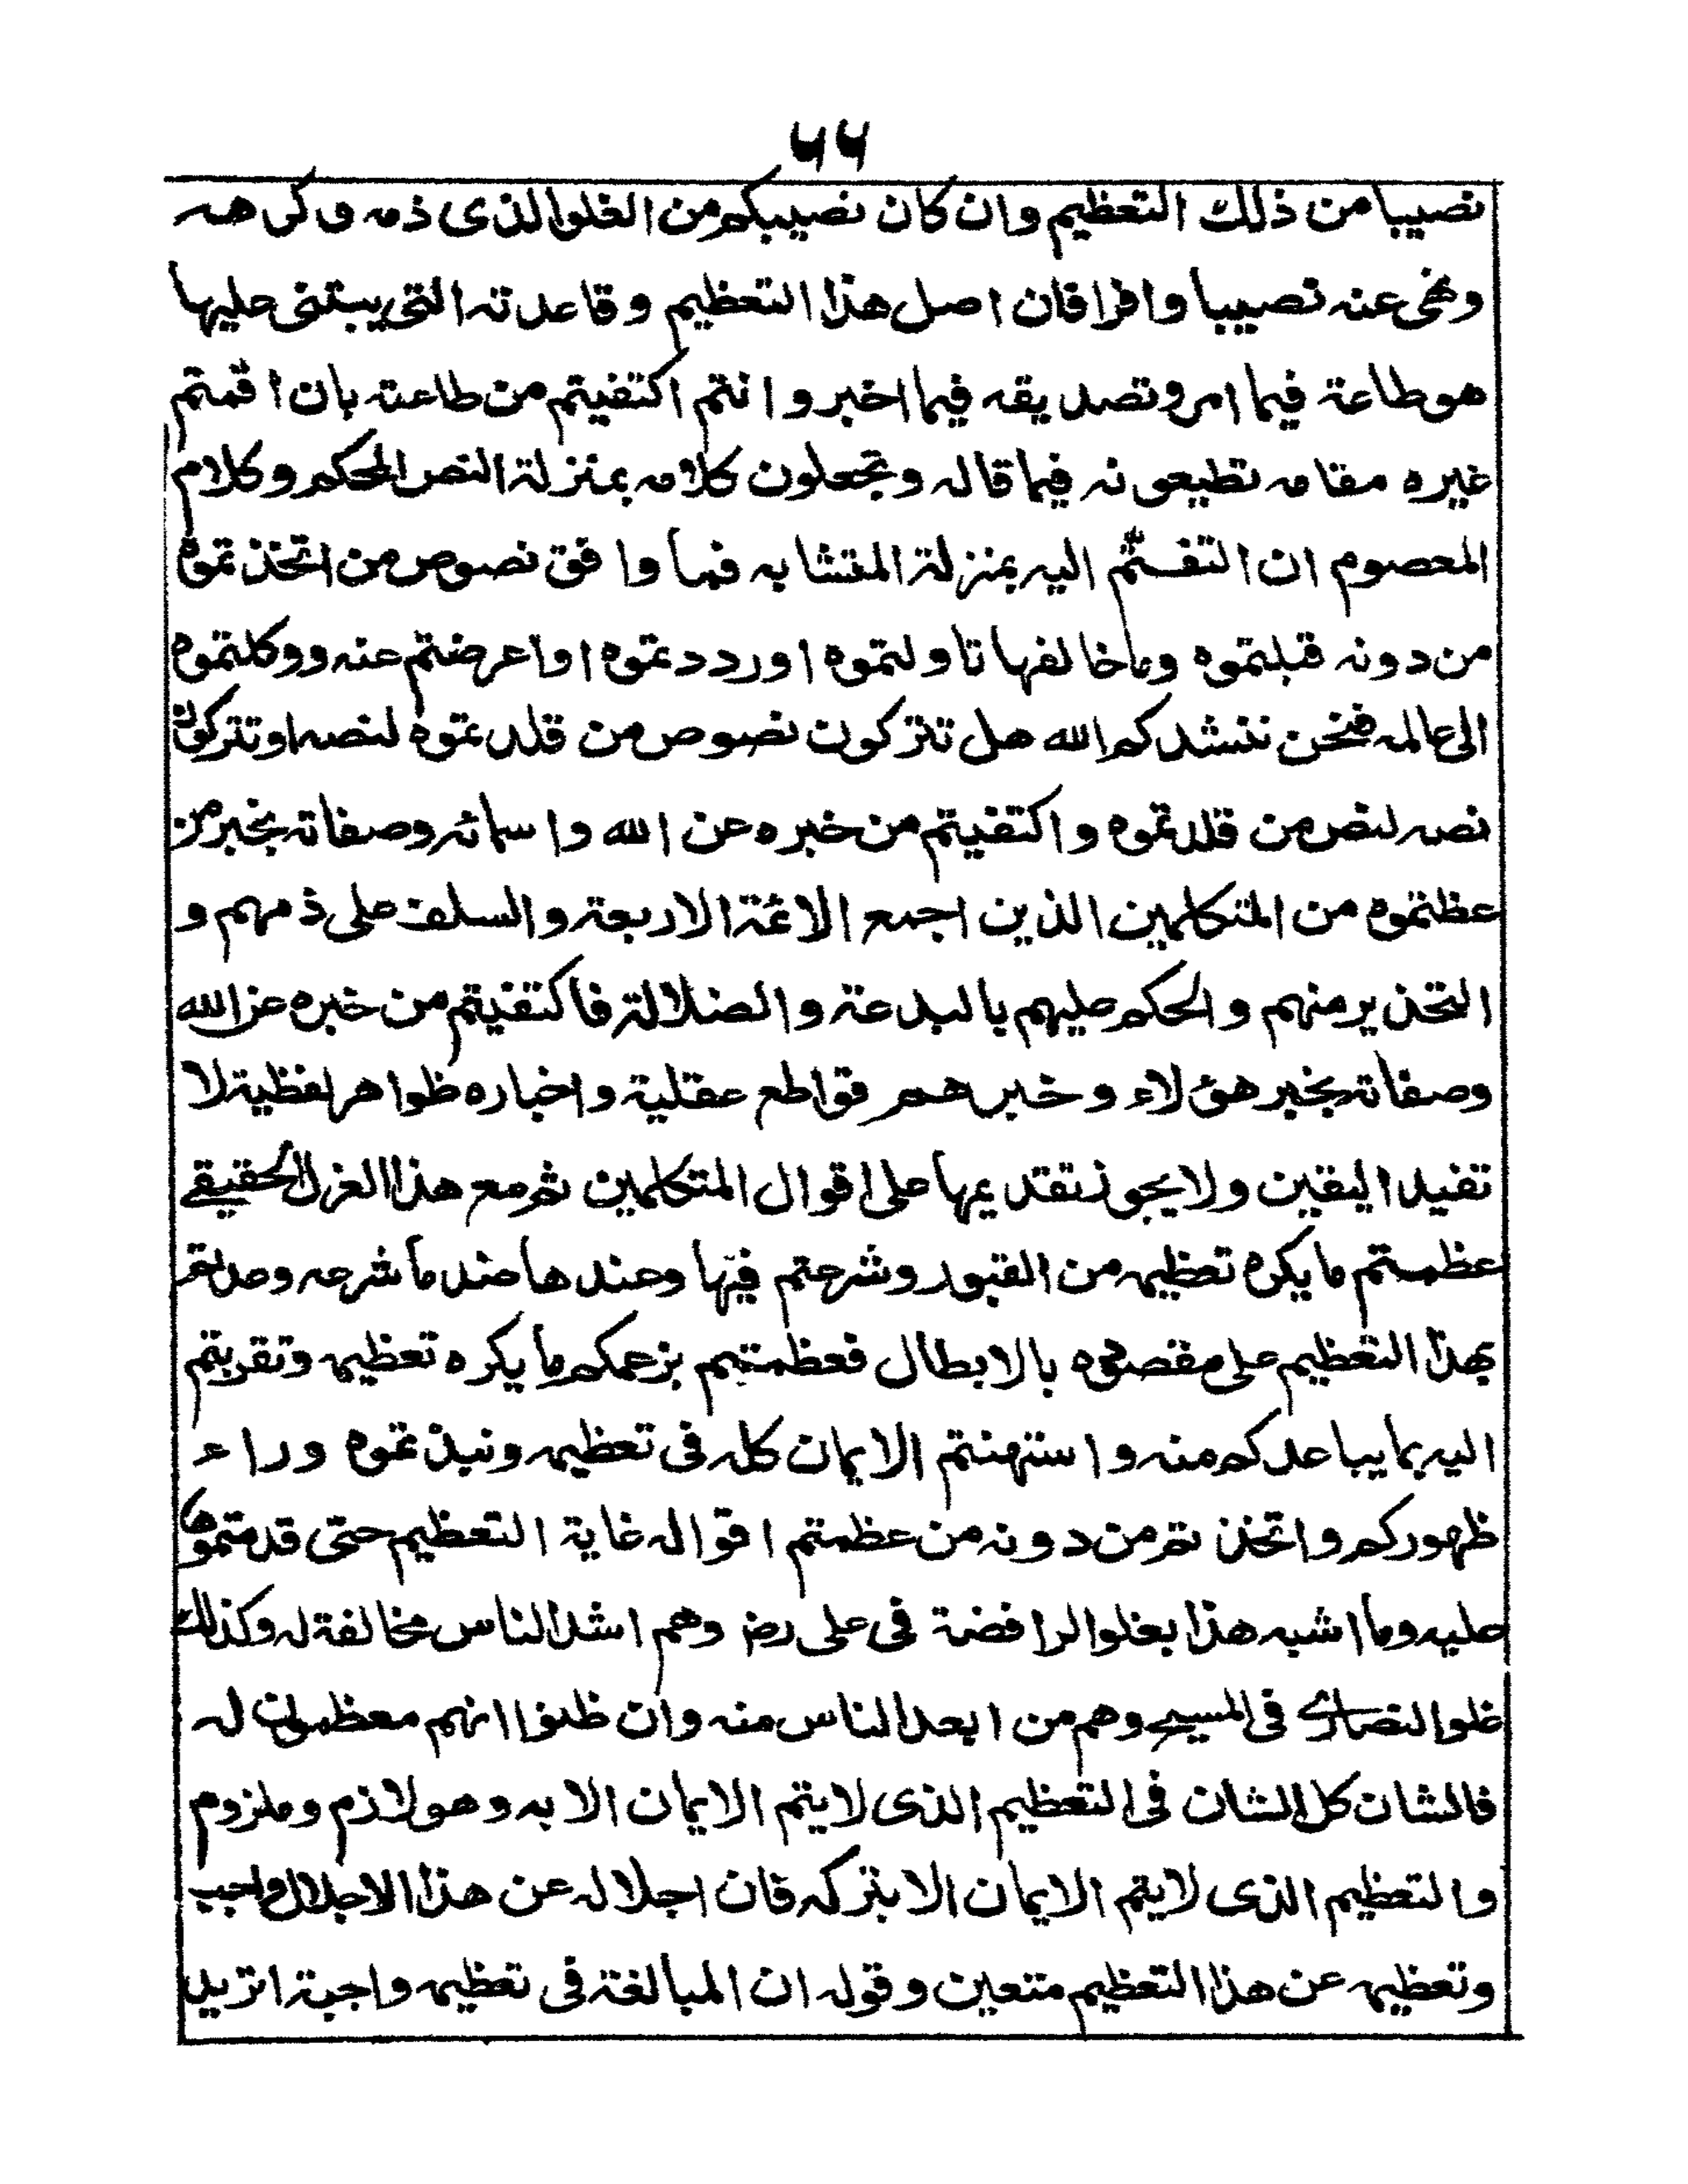 ۶۶
نصيبا من ذلك التعظيم وان كان نصيبكم من الغلو الذى ذمه وكرهه
ونهى عنه نصيبا وافرا فان اصل هذا التعظيم وقاعدته التى يبتنى عليها
هو طاعة فيما امر وتصديقه فيما اخبر وانتم اكتفيتم من طاعته بان اقمتم
غيره مقامه تطيعونه فيما قاله وتجعلون كلامه بمنزلة النص المحكم وكلام
المعصوم ان التفتم اليه بمنزلة المتشابه فما وافق نصوص من اتخذتموه
من دونه قبلتموه وما خالفها تاولتموه اورددتموه اواعرضتم عنه ووكلتموه
الى عالمه فنحن ننشدكم الله هل تتركون نصوص من قلدتموه لنصه اوتتركون
نصه لنص من قلدتموه واكتفيتم من خبره عن الله واسمائه وصفاته بخبر من
عظمتموه من المتكلمين الذين اجمع الائمة الاربعة والسلف على ذمهم و
التحذير منهم والحكم عليهم بالبدعة والضلالة فاكتفيتم من خبره عن الله
وصفاته بخبر هؤلاء وخبرهم قواطع عقلية واخباره ظواهر لفظية لا
تفيد اليقين ولا يجوز تقديمها على اقوال المتكلمين ثم مع هذا العزل الحقيقى
عظمتم ما يكره تعظيمه من القبور وشرعتم فيها وعندها ضد ما شرعه وعدتم
بهذا التعظيم على مقصوده بالابطال فعظمتم بزعمكم ما يكره تعظيمه وتقربتم
اليه بما يباعدكم منه واستهنتم الايمان كله فى تعظيمه ونبذتموه وراء
ظهوركم واتخذتم من دونه من عظمتم اقواله غاية التعظيم حتى قدمتموها
عليه وما اشبه هذا بغلو الرافضة فى على رض وهم اشد الناس مخالفة له وكذلك
غلو النصارى فى المسيح وهم من ابعد الناس منه وان ظنوا انهم معظمون له
فالشان كل الشان فى التعظيم الذى لا يتم الايمان الا به وهو لازم وملزوم
والتعظيم الذى لا يتم الايمان الا بتركه فان اجلاله عن هذا الاجلال واجب
وتعظيمه عن هذا التعظيم متعين وقوله ان المبالغة فى تعظيمه واجبة اتريد